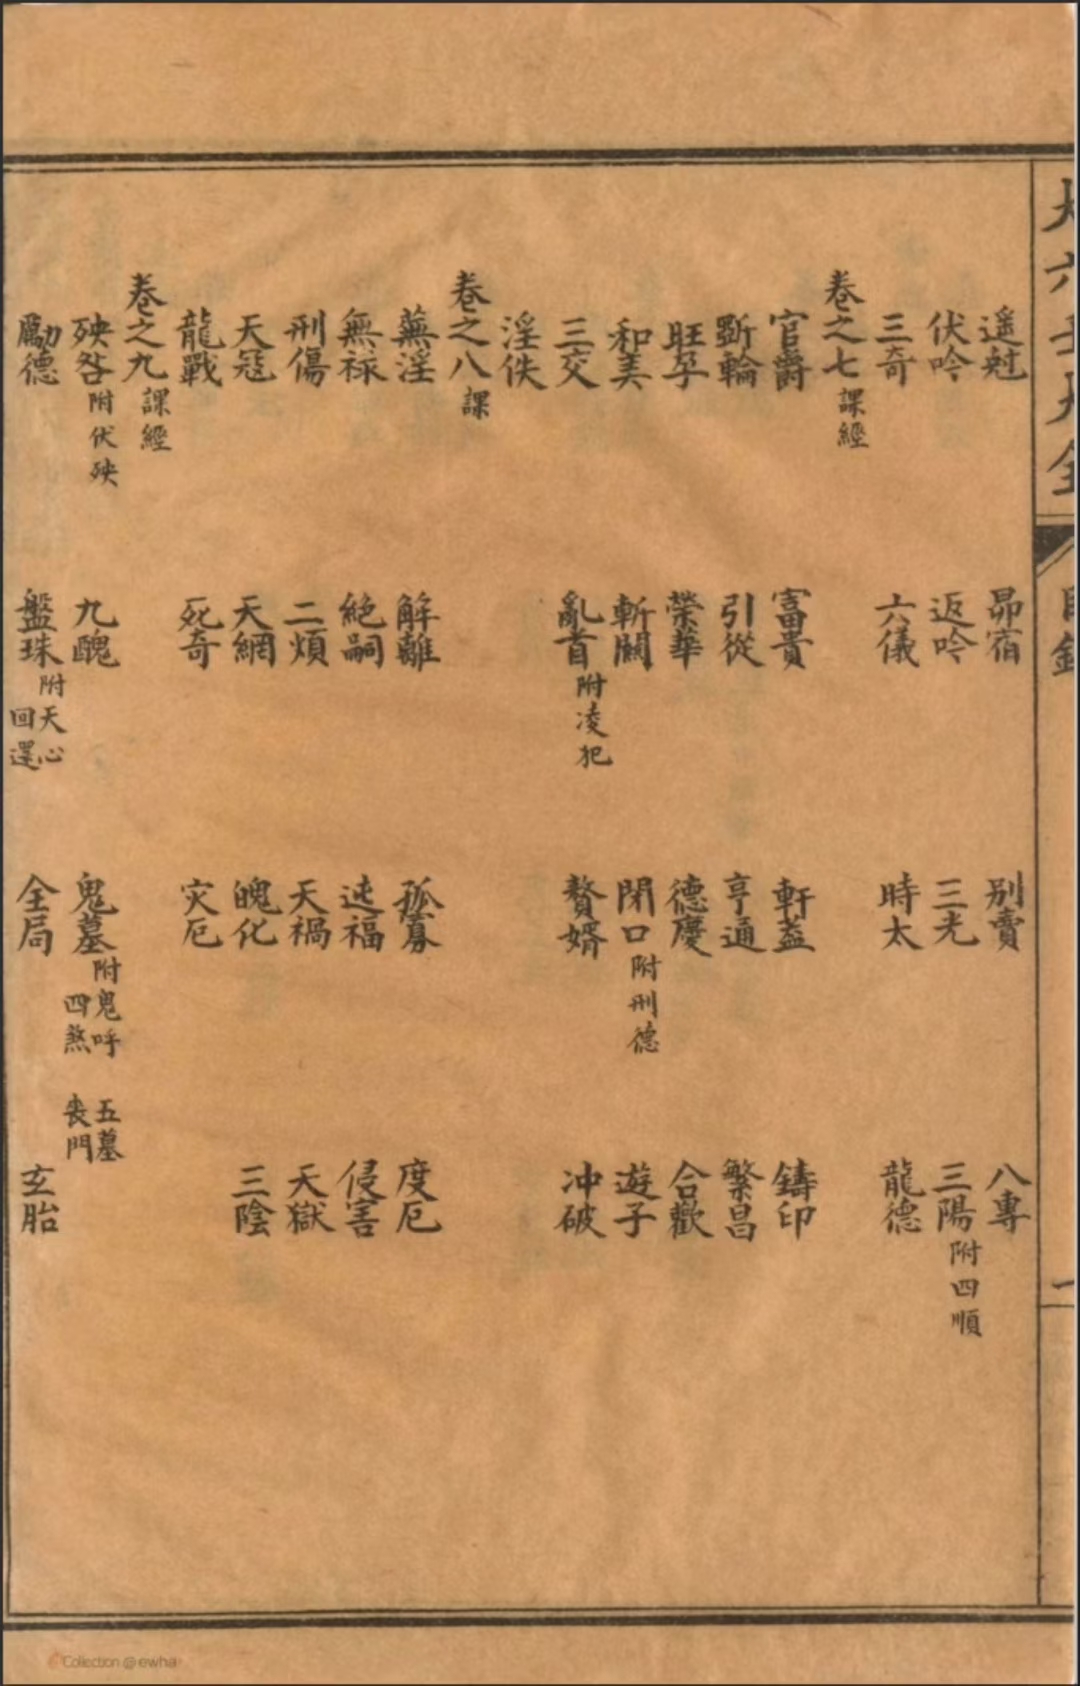 大六壬大全 目錄 一
遥尅 昴宿 别賣 八專
伏吟 返吟 三光 三陽附四順
三奇 六儀 時太 龍德
卷之七課經
官爵 富貴 軒蓋 鑄印
斲輪 引從 亨通 繁昌
旺孕 榮華 德慶 合歡
和美 斬關 閉口附刑德 遊子
三交 亂首附凌犯 贅婿 冲破
淫佚
卷之八課
蕪淫 解離 孤寡 度厄
無禄 絕嗣 迍福 侵害
刑傷 二煩 天禍 天獄
天冦 天網 魄化 三陰
龍戰 死奇 灾厄
卷之九課經
殃咎附伏殃 九醜 鬼墓附鬼呼四煞 五墓喪門
勵德 盤珠附天心回還 全局 玄胎
Collection @ ewha